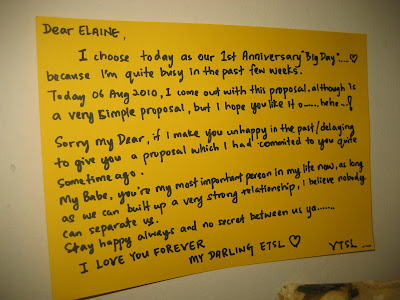 Dear ELAINE,
I choose today as our 1st Anniversary "Big Day"....♡
because I'm quite busy in the past few weeks.
Today 06 Aug 2010, I come out with this proposal. although is
a very simple proposal, but I hope you like it o......hehe...!
Sorry my Dear, if I make you unhappy in the past/delaying
to give you a proposal which I had commited to you quite
sometime ago.
My Babe, you're my most important person in my life now, as long
as we can built up a very strong relationship, I believe nobody
can separate us.
Stay happy always and no secret between us ya.......
I LOVE YOU FOREVER
MY DARLING ETSL ♡ VTSL ...